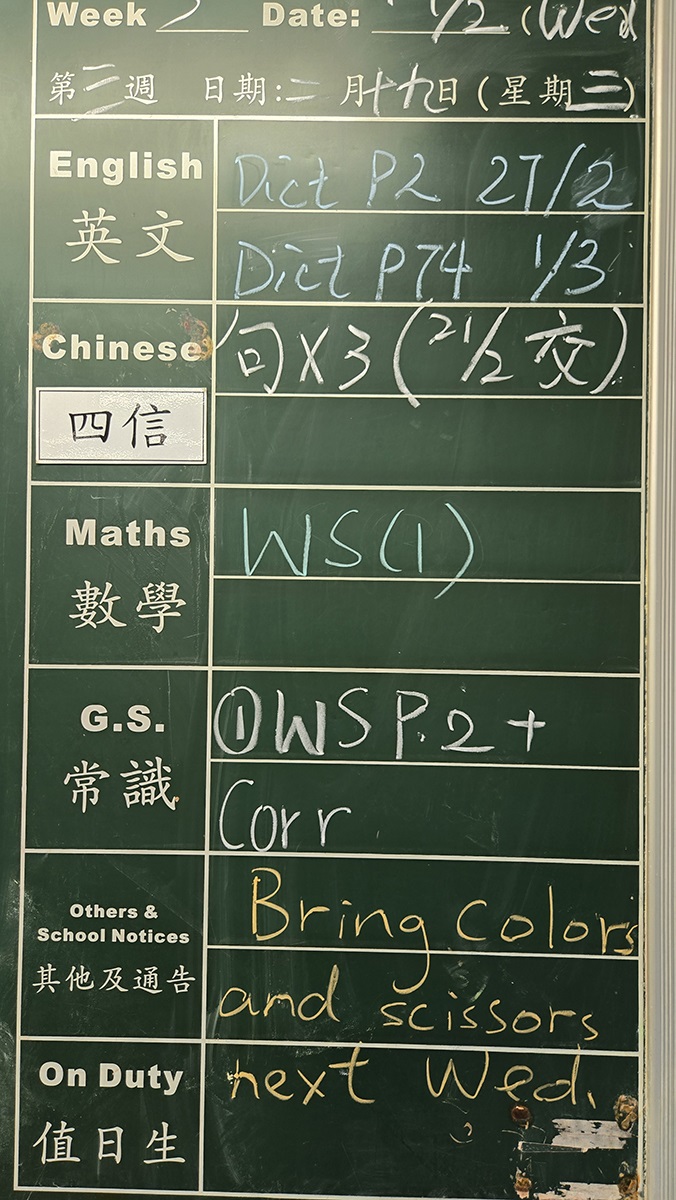 Week Date: 1/2 (Wed
第二週 日期:二月十九日(星期三)
English
英文
Dict P2 27/2
Dict P74 1/3
Chinese
四信
句X3(21/2交)
Maths
數學
WS(1)
G.S.
常識
①WS P.2+
Corr
Others &
School Notices
其他及通告
Bring colors
and scissors
next Wed.
On Duty
值日生